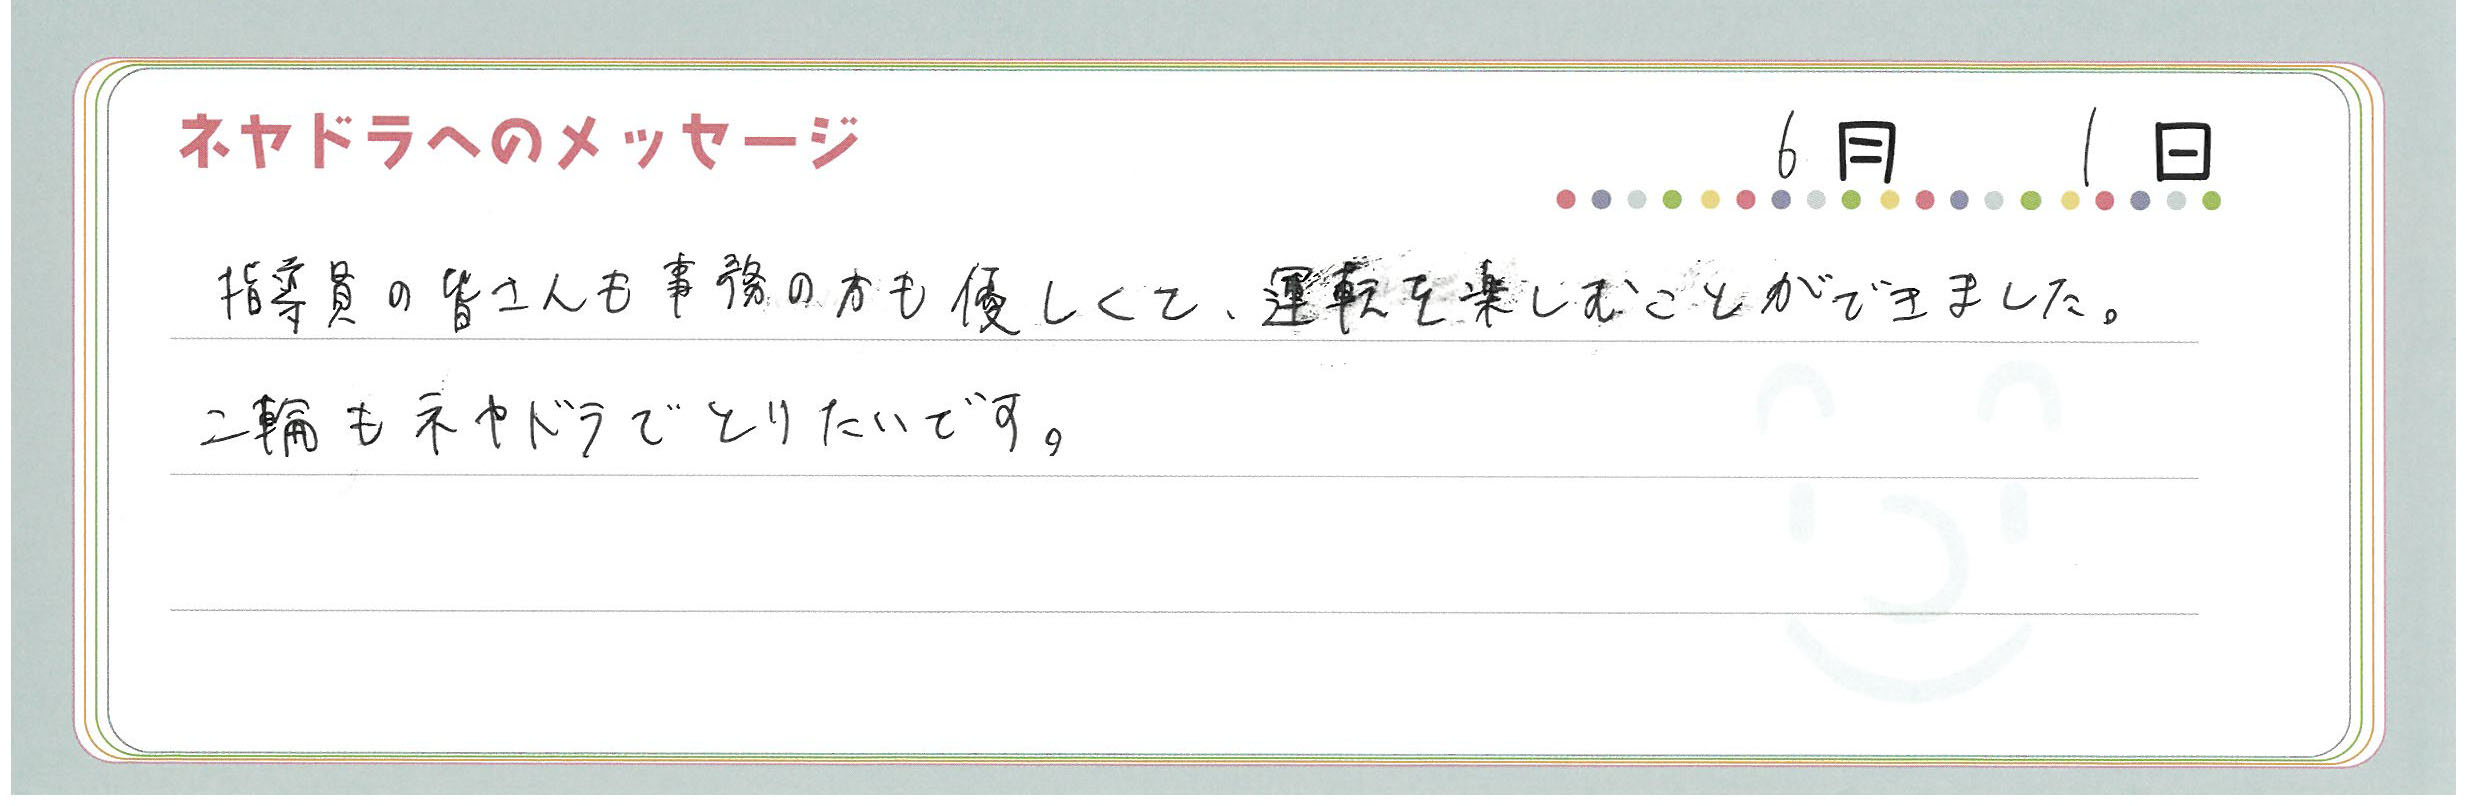 ネヤドラへのメッセージ
6月 1日
指導員の皆さんも事務の方も優しくて、運転を楽しむことができました。
二輪もネヤドラでとりたいです。